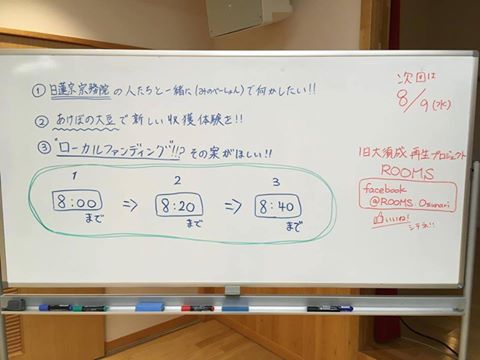 ① 日蓮宗宗務院の人たちと一緒に(みのべーしょん)で何かしたい!!
② あけぼの大豆で新しい収穫体験を!!
③ "ローカルファンディング"!!? その実がほしい!!
1 2 3
8:00 ⇒ 8:20 ⇒ 8:40
まで まで まで
次回は
8/9(水)
旧大須成再生プロジェクト
ROOMS
facebook
@ROOMS.Osunari
いいね!
シテネ!!